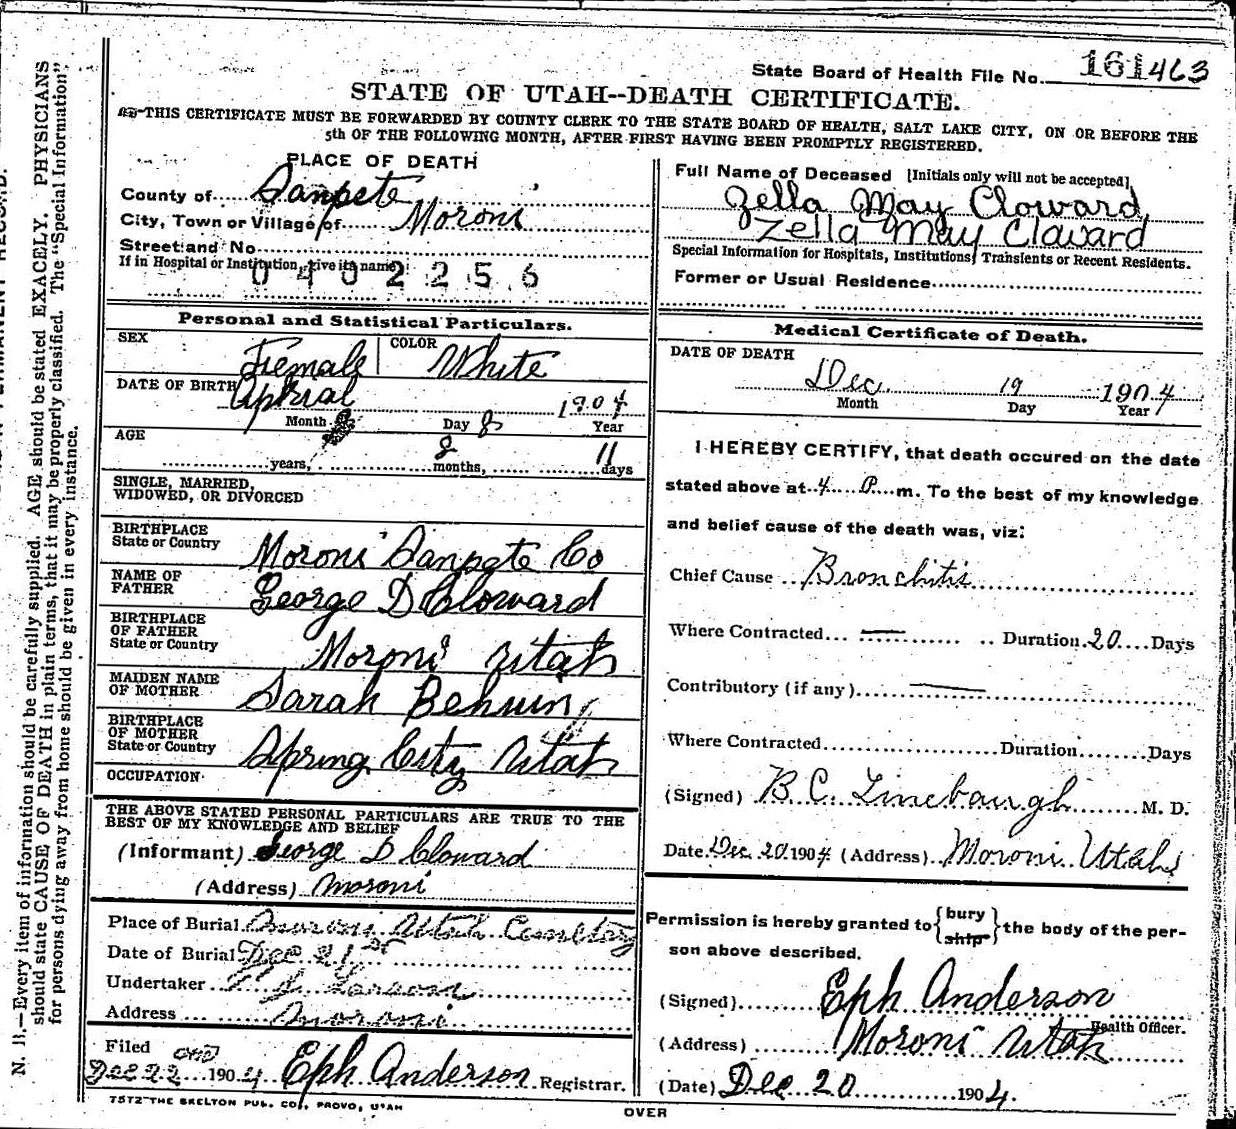 State Board of Health File No. 161463
STATE OF UTAH--DEATH CERTIFICATE.
THIS CERTIFICATE MUST BE FORWARDED BY COUNTY CLERK TO THE STATE BOARD OF HEALTH, SALT LAKE CITY, ON OR BEFORE THE
5th OF THE FOLLOWING MONTH, AFTER FIRST HAVING BEEN PROMPTLY REGISTERED.
PLACE OF DEATH
County of Sanpete
City, Town or Village of Moroni
Street and No.
If in Hospital or Institution, give its name
0402256
Full Name of Deceased [Initials only will not be accepted]
Zella May Cloward
Zella May Claward
Special Information for Hospitals, Institutions, Transients or Recent Residents.
Former or Usual Residence
Personal and Statistical Particulars.
SEX Female COLOR White
DATE OF BIRTH Aprial 8 1904
Month Day Year
AGE 8 11
years, months, days
SINGLE, MARRIED,
WIDOWED, OR DIVORCED
BIRTHPLACE
State or Country Moroni Sanpete Co
NAME OF
FATHER George D Cloward
BIRTHPLACE
OF FATHER
State or Country Moroni Utah
MAIDEN NAME
OF MOTHER Sarah Behunin
BIRTHPLACE
OF MOTHER
State or Country Spring City Utah
OCCUPATION
THE ABOVE STATED PERSONAL PARTICULARS ARE TRUE TO THE
BEST OF MY KNOWLEDGE AND BELIEF
(Informant) George D Cloward
(Address) Moroni
Place of Burial Moroni Utah Cemetery
Date of Burial Dec 21st
Undertaker Larson
Address Moroni
Filed
Dec 22 1904 Eph Anderson Registrar.
7572-THE SKELTON PUB. CO., PROVO, UTAH
Medical Certificate of Death.
DATE OF DEATH
Dec 19 1904
Month Day Year
I HEREBY CERTIFY, that death occured on the date
stated above at 4 P. m. To the best of my knowledge
and belief cause of the death was, viz:
Chief Cause Bronchitis
Where Contracted — Duration 20 Days
Contributory (if any) —
Where Contracted Duration Days
(Signed) B. C. Linebaugh M. D.
Date Dec 20 1904 (Address) Moroni Utah
Permission is hereby granted to { bury
ship } the body of the per-
son above described.
(Signed) Eph Anderson
Health Officer.
(Address) Moroni Utah
(Date) Dec 20 1904.
OVER
N. B.—Every item of information should be carefully supplied. AGE should be stated EXACELY. PHYSICIANS
should state CAUSE OF DEATH in plain terms, that it may be properly classified. The "Special Information"
for persons dying away from home should be given in every instance.